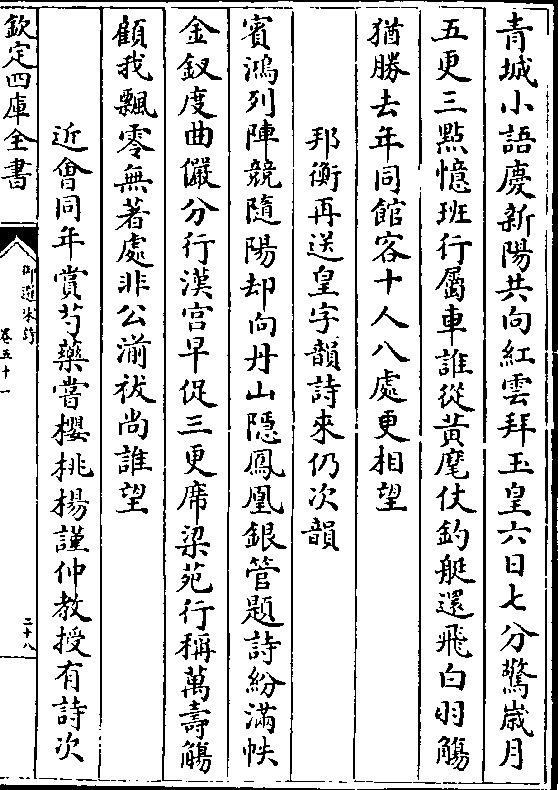 青城小語慶新陽共向紅雲拜玉皇六日七分驚嵗月
五更三點憶班行屬車誰從黃麾仗釣艇還飛白羽觴
猶勝去年同館客十人八處更相望
邦衡再送皇字韻詩來仍次韻
賓鴻列陣競隨陽却向丹山隱鳳凰銀管題詩紛滿帙
金釵度曲儼分行漢宮早促三更席梁苑行稱萬壽觴
顧我飄零無著處非公湔祓尚誰望
近㑹同年賞芍藥嘗櫻桃楊謹仲教授有詩次
欽定四庫全書
御選宋詩
卷五十一
二十八